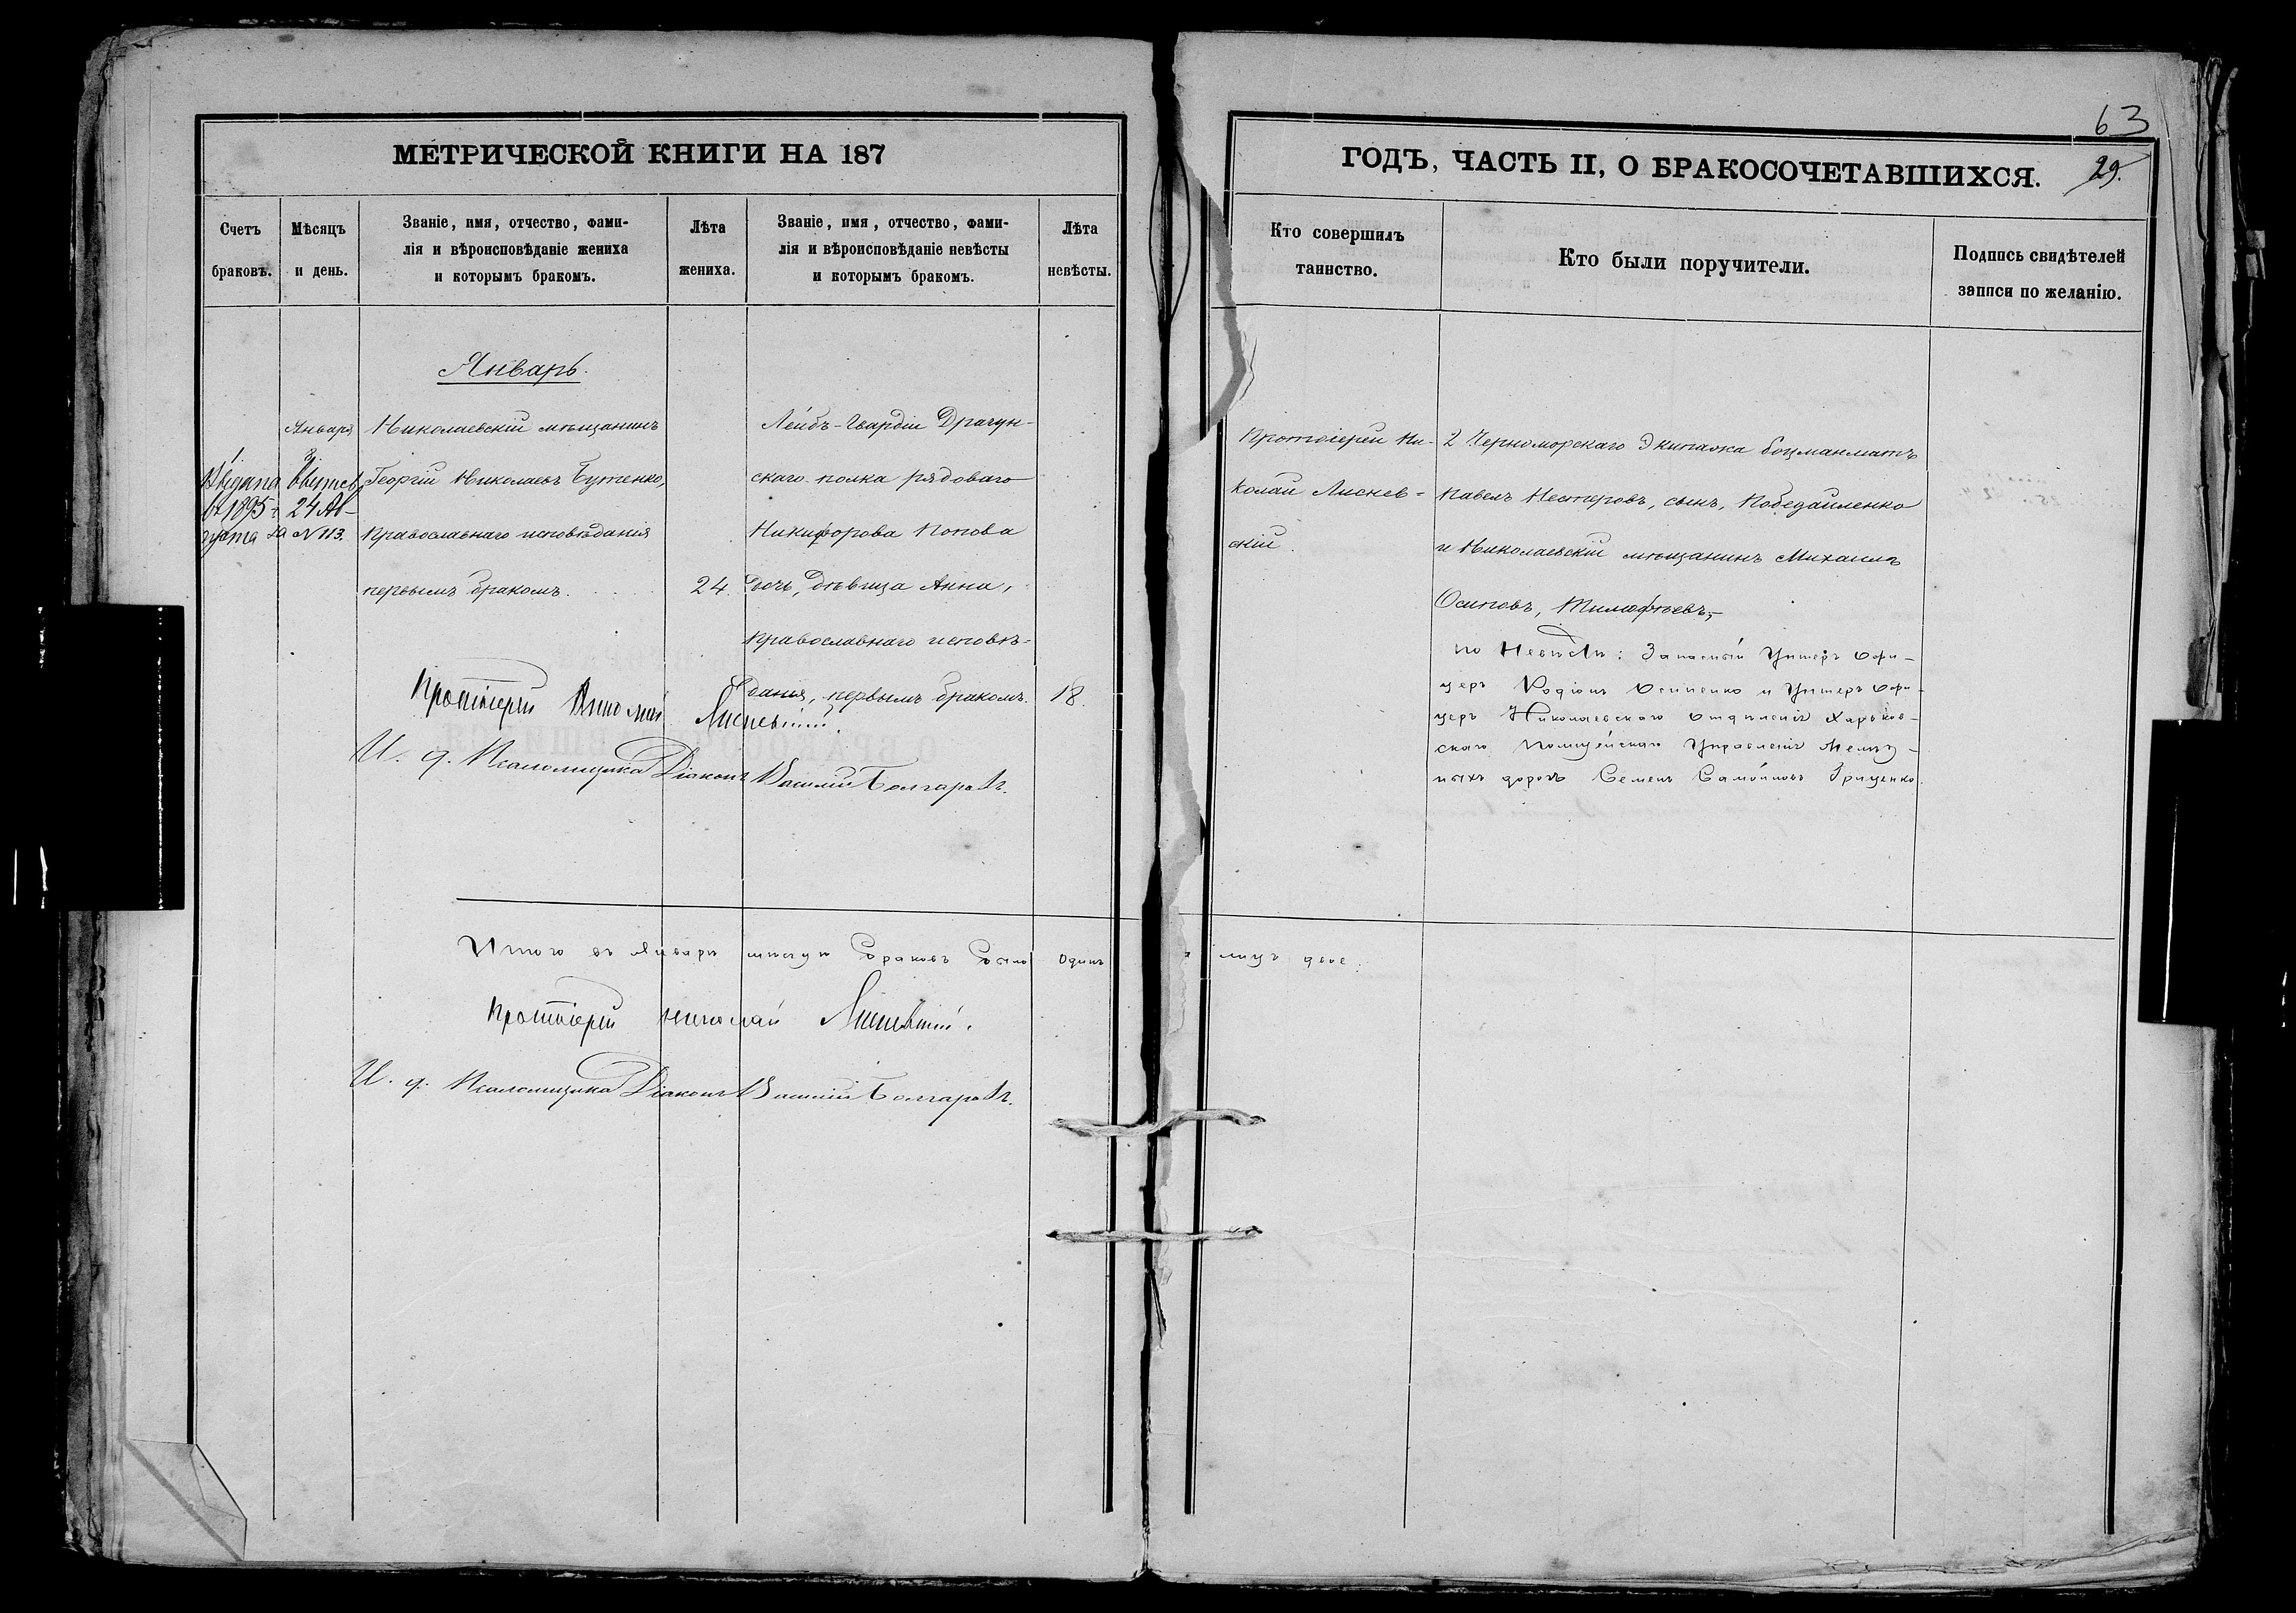 63
МЕТРИЧЕСКОЙ КНИГИ НА 187
ГОДЪ, ЧАСТЬ II, О БРАКОСОЧЕТАВШИХСЯ.
29.
Счетъ
браковъ.
Мѣсяцъ
и день.
Званіе, имя, отчество, фами-
лія и вѣроисповѣданіе жениха
и которымъ бракомъ.
Лѣта
жениха.
Званіе, имя, отчество, фами-
лія и вѣроисповѣданіе невѣсты
и которымъ бракомъ.
Лѣта
невѣсты.
Кто совершилъ
таинство.
Кто были поручители.
Подпись свидѣтелей
записи по желанію.
Январь.
1
Января
3
Выдана
въ 1895 г. 24 Ав-
густа за N 113.
Николаевскій мѣщанинъ
Георгій Николаевъ Бутенко,
православнаго исповѣданія
первымъ бракомъ.
24.
Лейбъ-Гвардіи Драгун-
скаго полка рядоваго
Никифорова Попова
дочь, дѣвица Анна,
православнаго исповѣ-
данія, первымъ бракомъ.
18.
Протоіерей Николай Лисневскій.
И. д. Псаломщика Діаконъ Василій Болгаровъ.
Протоіерей Ни-
колай Лиснев-
скій.
2 Черноморскаго Экипажа боцманматъ
Павелъ Нестеровъ, сынъ, Победайленко
и Николаевскій мѣщанинъ Михаилъ
Осиповъ, Тимофѣевъ,
по Невѣстѣ: Запасный Унтеръ Офи-
церъ Родіонъ Осипенко и Унтеръ Офи-
церъ Николаевскаго Отдѣленія Харьков-
скаго Полицейскаго Управленія Желѣз-
ныхъ дорогъ Семенъ Самойловъ Гриценко.
Итого въ Январѣ мѣсяцѣ браковъ было одинъ а лицъ двое.
Протоіерей Николай Лисневскій.
И. д. Псаломщика Діаконъ Василій Болгаровъ.